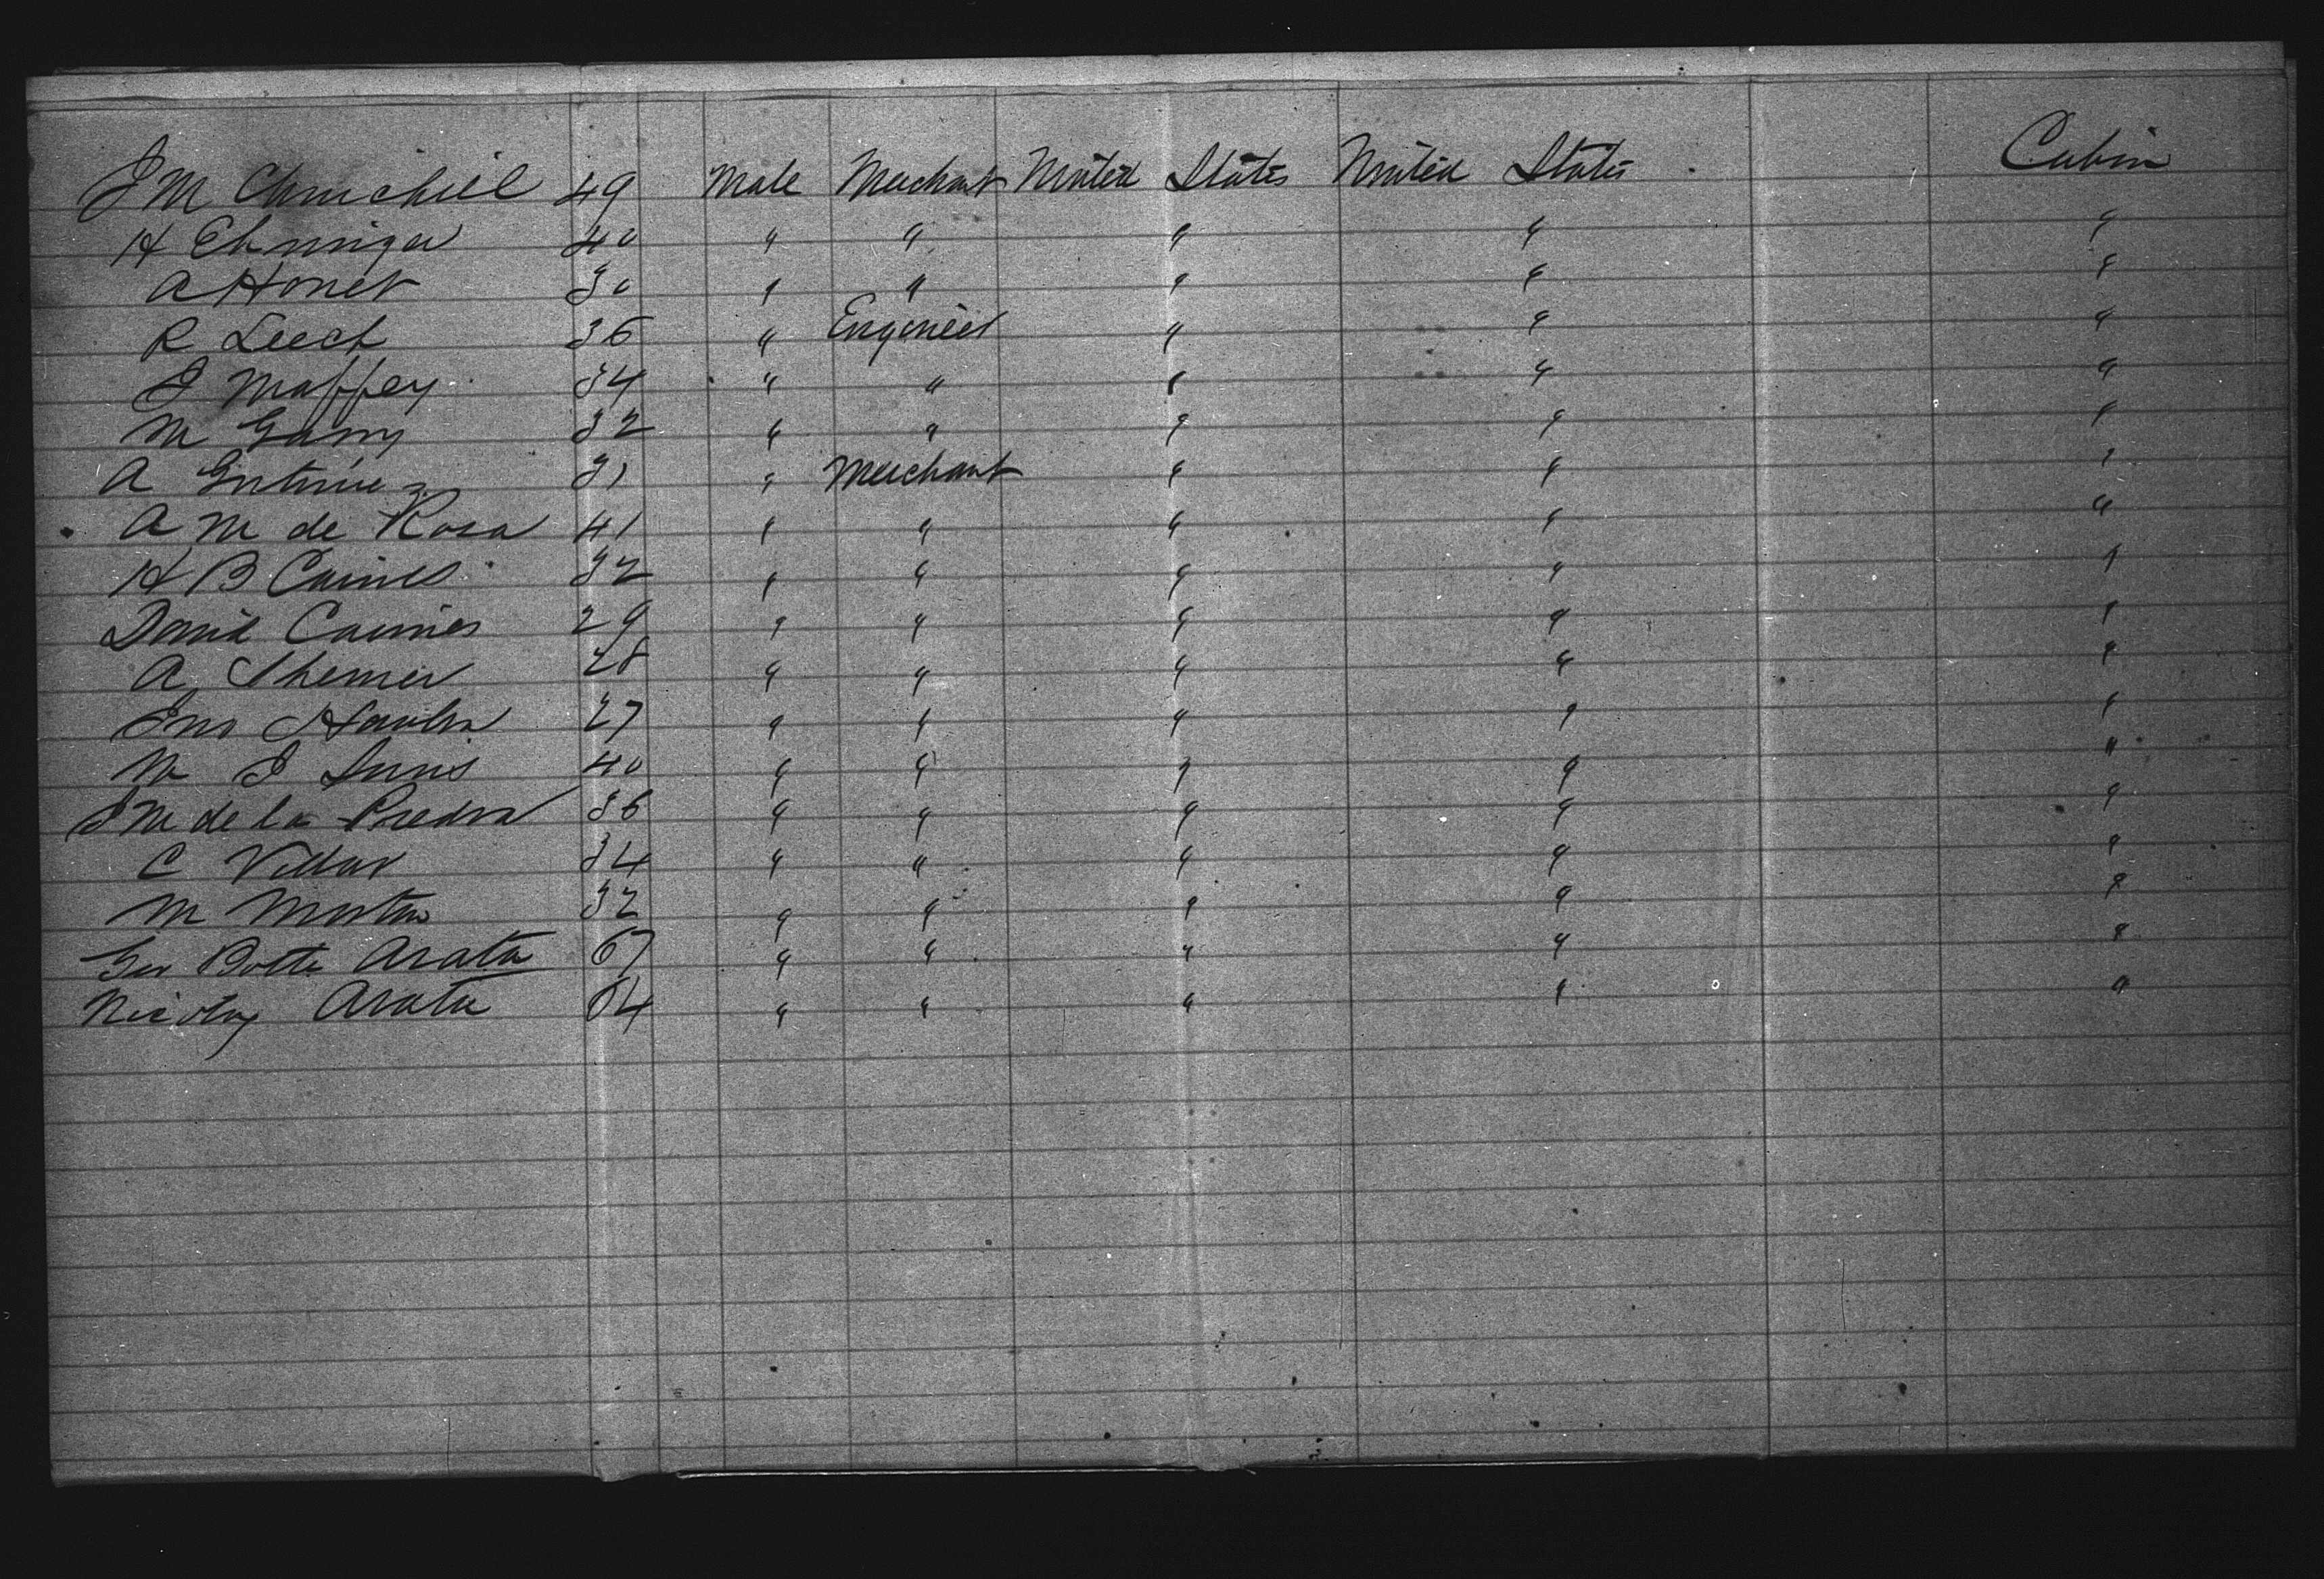 J M Churchill 49 Male Merchant United States United States Cabin
H Ehninger 40 " " " " "
A Honet 30 " " " " "
R Leech 36 " Engineer " " "
J Maffey 34 " " " " "
M Garry 32 " " " " "
A Gutierrez 31 " Merchant " " "
A M de Rosa 41 " " " " "
H B Caines 32 " " " " "
David Caimes 29 " " " " "
A 28 " " " " "
Jno 27 " " " " "
J 40 " " " " "
J M de la Piedra 36 " " " " "
C Villar 34 " " " " "
M 32 " " " " "
Geo Botte Arata 67 " " " " "
Nicolay Arata 64 " " " " "